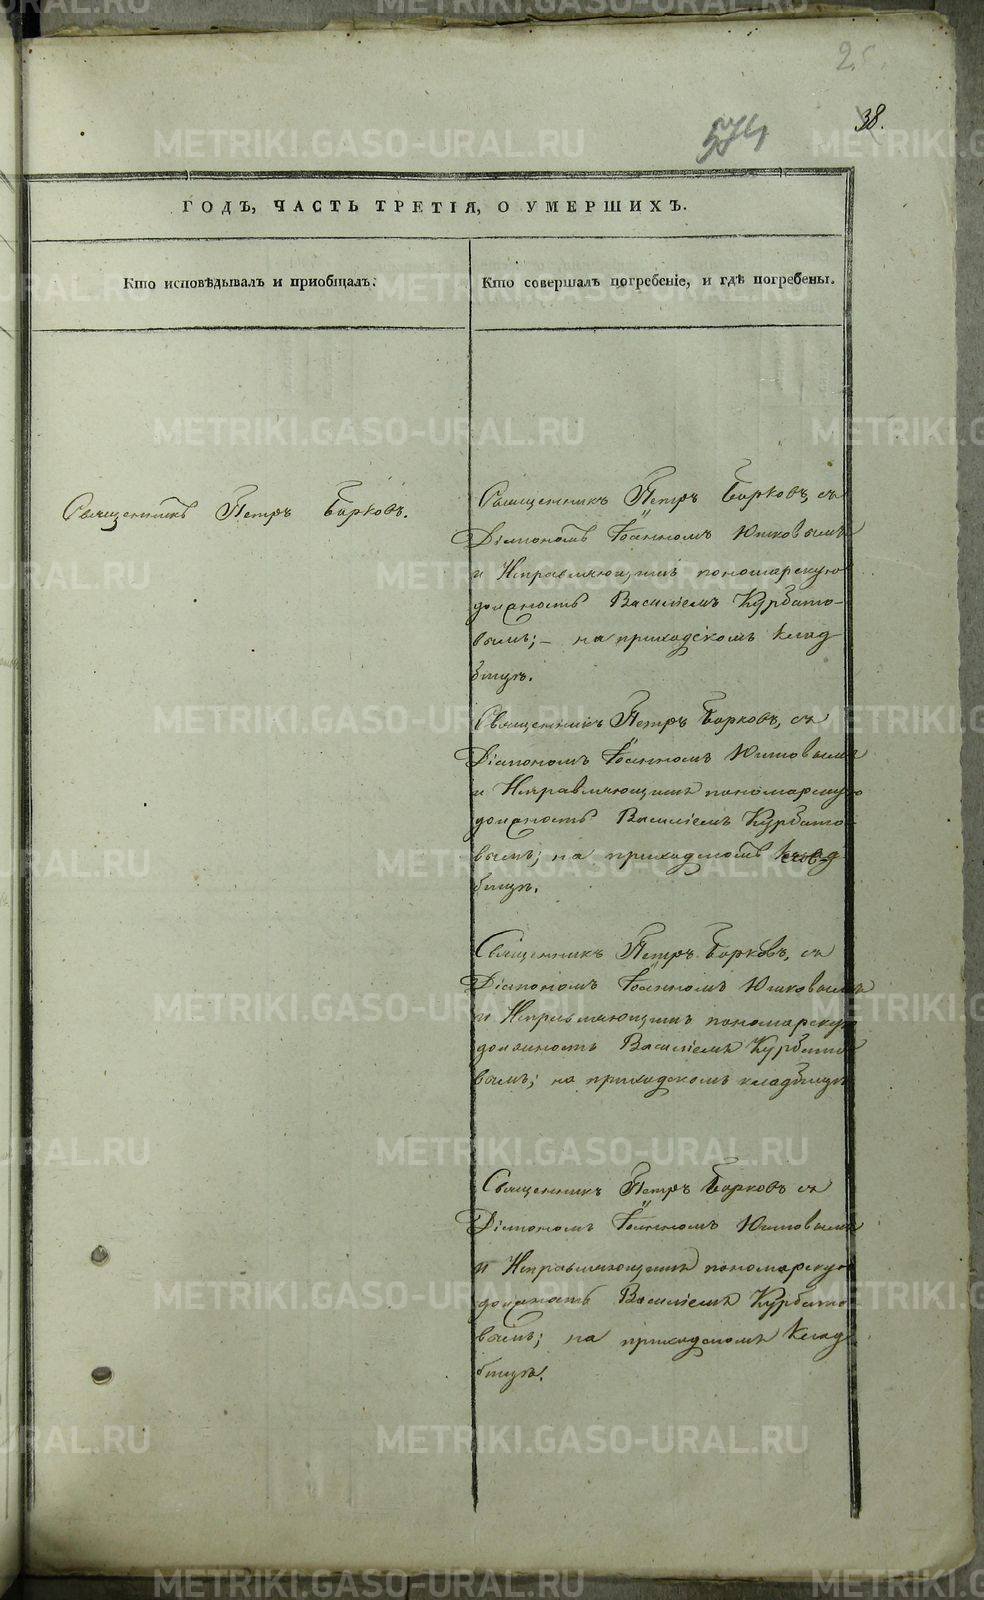 25.
38.
574
ГОДЪ, ЧАСТЬ ТРЕТІЯ, О УМЕРШИХЪ.
Кто исповѣдывалъ и приобщалъ.
Кто совершалъ погребеніе, и гдѣ погребены.
Священникъ Петръ Борковъ.
Священникъ Петръ Борковъ, съ
Діакономъ Іоанномъ Юшковымъ
и Исправляющимъ пономарскую
должность Василіемъ Курбато-
вымъ; – на приходскомъ клад
бищѣ.
Священникъ Петръ Борковъ, съ
Діакономъ Іоанномъ Юшковымъ
и Исправляющимъ пономарскую
должность Василіемъ Курбато-
вымъ; на приходскомъ клад
бищѣ.
Священникъ Петръ Борковъ, съ
Діакономъ Іоанномъ Юшковымъ
и Исправляющимъ пономарскую
должность Василіемъ Курбато
вымъ; на приходскомъ кладбищѣ
Священникъ Петръ Борковъ съ
Діакономъ Іоанномъ Юшковымъ
и Исправляющимъ пономарскую
должность Василіемъ Курбато
вымъ; на приходскомъ клад
бищѣ.
METRIKI.GASO-URAL.RU